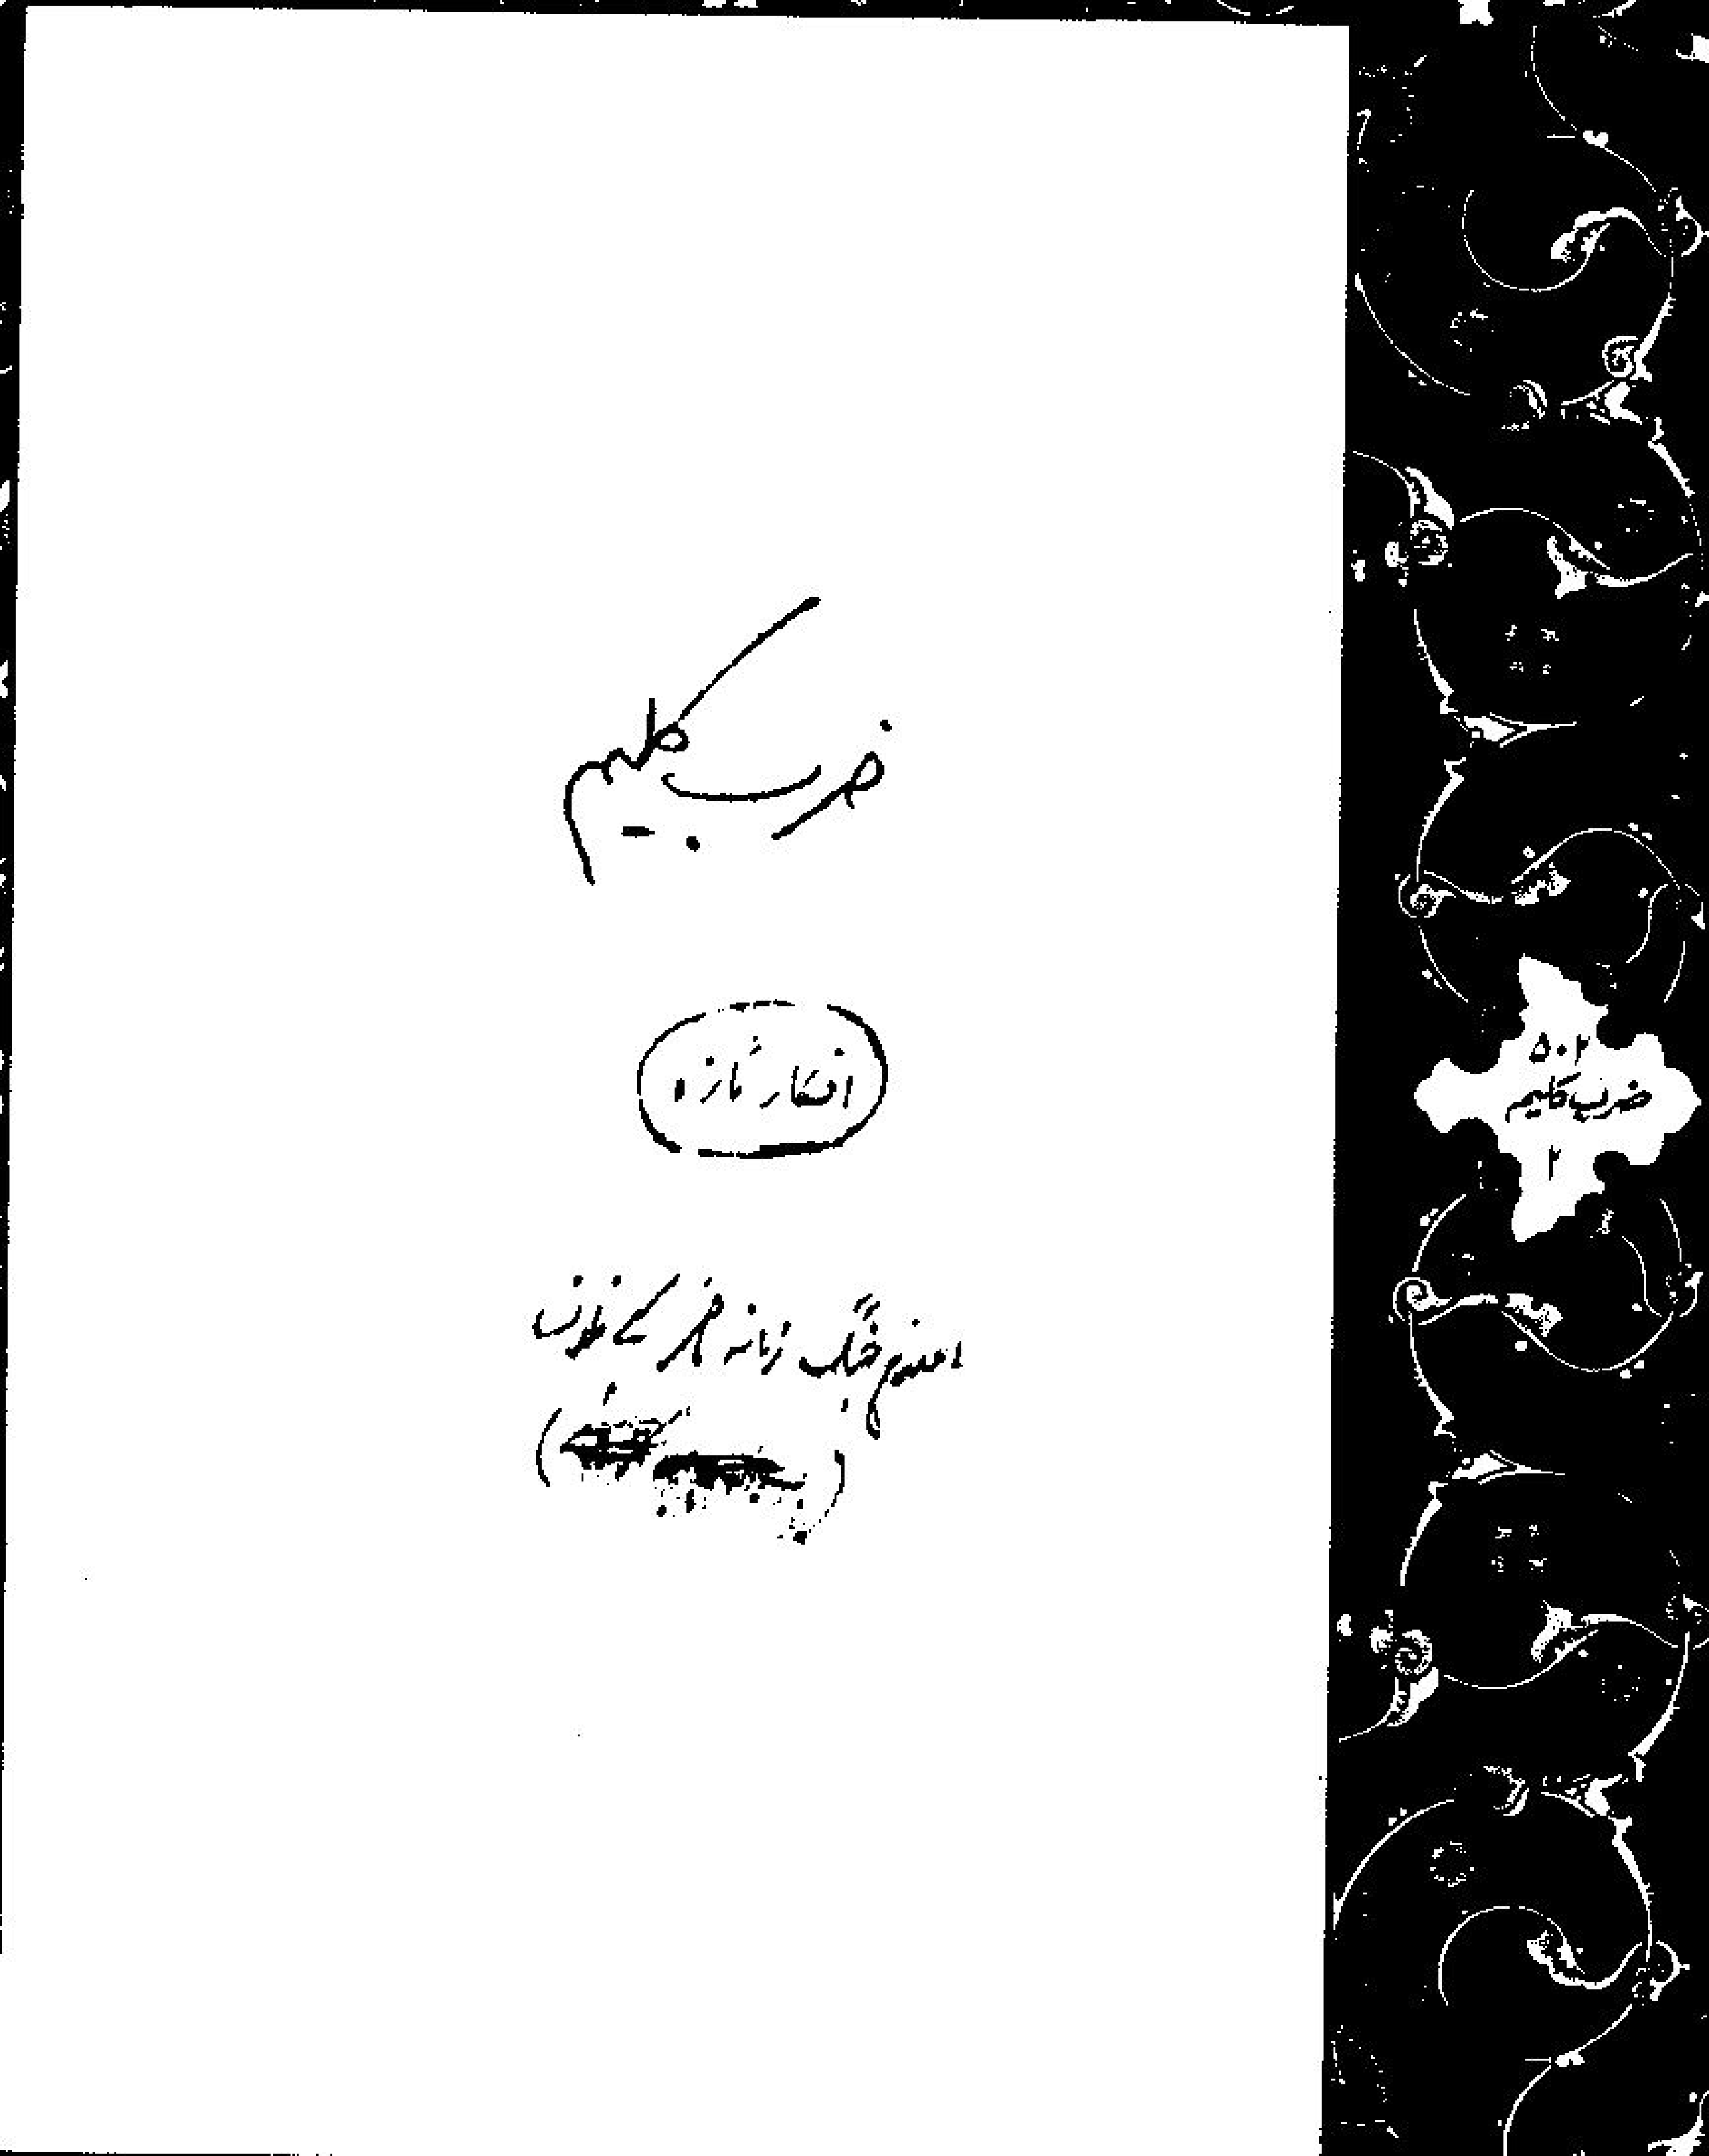 ضرب کلیم
افکار تازہ
اعلان جنگ زمانہ حاضر کے خلاف
۵۰۲
ضرب کلیم
۲